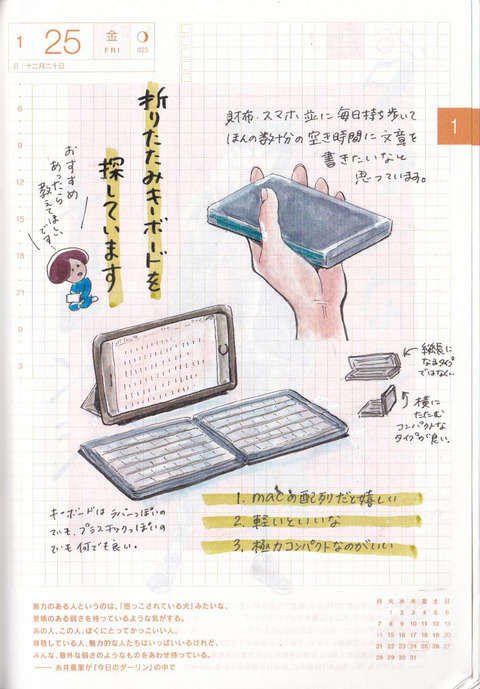 1
25
金
FRI
025
旧:十二月二十日
1
折りたたみキーボードを
探しています
おすすめ
あったら
教えてほしい
です…
財布・スマホ並に毎日持ち歩いて
ほんの数十分の空き時間に文章を
書きたいなと
思っています。
6
9
12
15
18
21
0
3
縦長に
なるタイプ
ではなく、
横に
たたむ
コンパクトな
タイプが良い。
1. macの配列だと嬉しい
2. 軽いといいな
3. 極力コンパクトなのがいい
キーボードはラバーっぽいの
でも、プラスチックっぽいの
でも何でも良い。
魅力のある人というのは、「抱っこされている犬」みたいな、
愛嬌のある弱さを持っているような気がする。
あの人、この人、ぼくにとってかっこいい人、
尊敬している人、魅力的な人たちはいっぱいいるけれど、
みんな、意外な弱さのようなものをあわせ持っている。
―― 糸井重里が『今日のダーリン』の中で
月 火 水 木 金 土 日
1 2 3 4 5 6
7 8 9 10 11 12 13
14 15 16 17 18 19 20
21 22 23 24 25 26 27
28 29 30 31